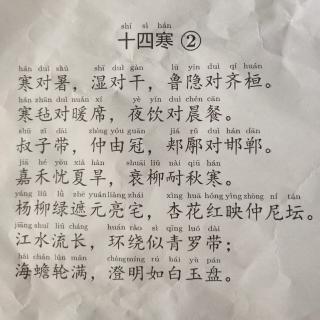 shí sì hán
十四寒 ②
hán duì shǔ shī duì gān lǔ yǐn duì qí huán
寒对暑，湿对干，鲁隐对齐桓。
hán zhān duì nuǎn xí yè yǐn duì chén cān
寒毡对暖席，夜饮对晨餐。
shū zǐ dài zhòng yóu guān jiá rǔ duì hán dān
叔子带，仲由冠，郏鄏对邯郸。
jiā hé yōu xià hàn shuāi liǔ nài qiū hán
嘉禾忧夏旱，衰柳耐秋寒。
yáng liǔ lǜ zhē yuán liàng zhái xìng huā hóng yìng zhòng ní tán
杨柳绿遮元亮宅，杏花红映仲尼坛。
jiāng shuǐ liú cháng huán rào sì qīng luó dài
江水流长，环绕似青罗带；
hǎi chán lún mǎn chéng míng rú bái yù pán
海蟾轮满，澄明如白玉盘。